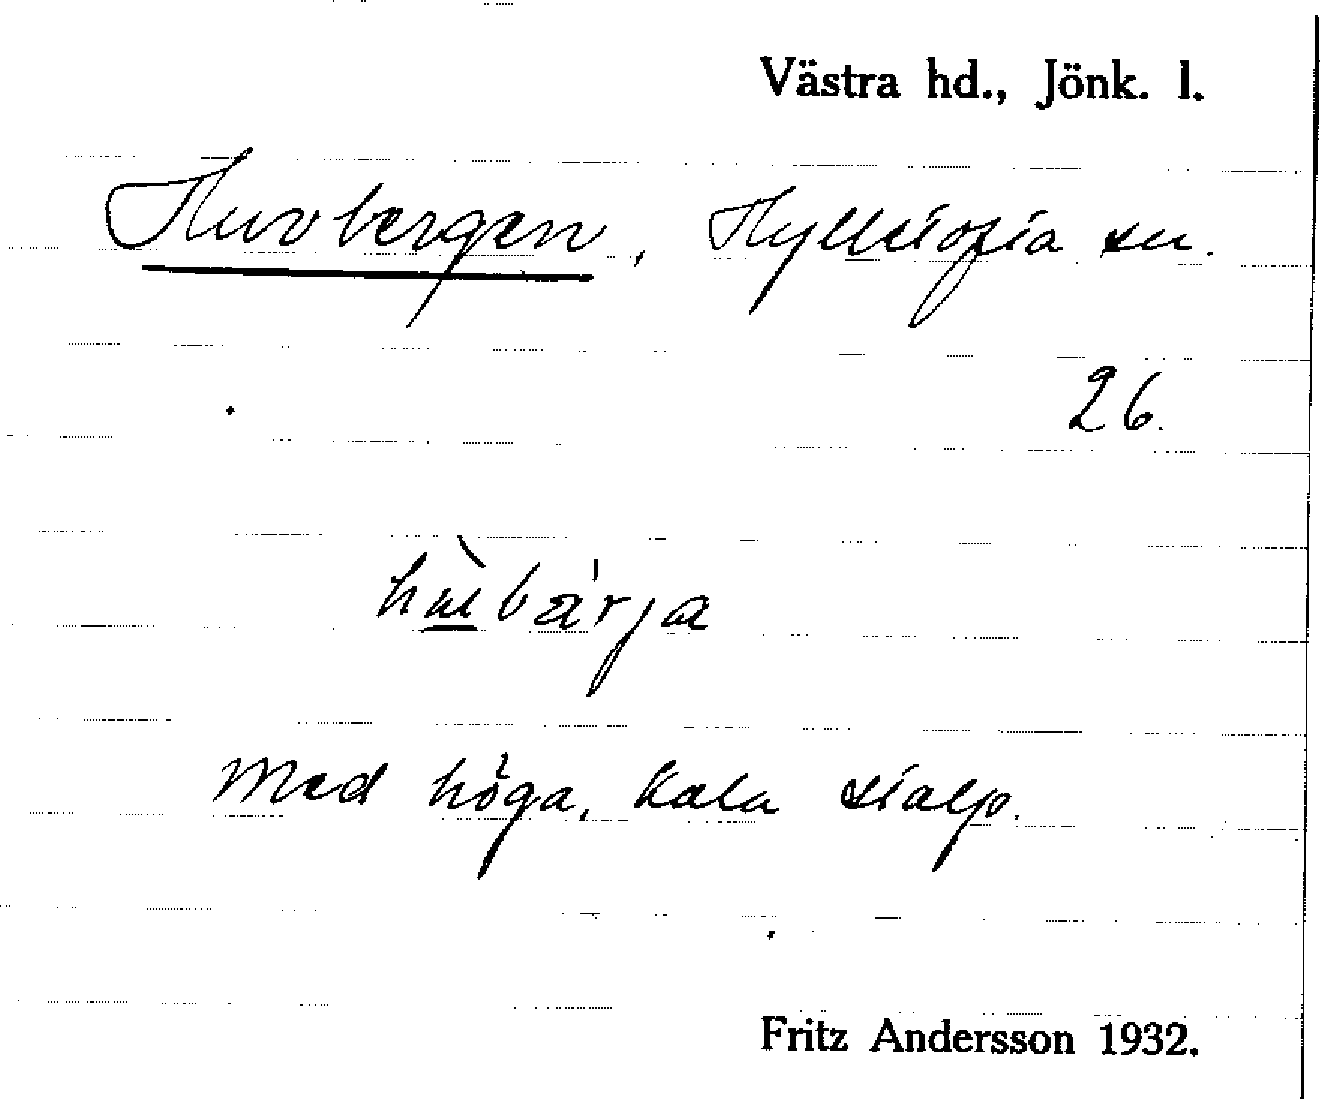 Västra hd., Jönk. l.
Huvbergen, Hylletofta sn.
26.
hù̲bä'rja
Med höga, kala stalp.
Fritz Andersson 1932.